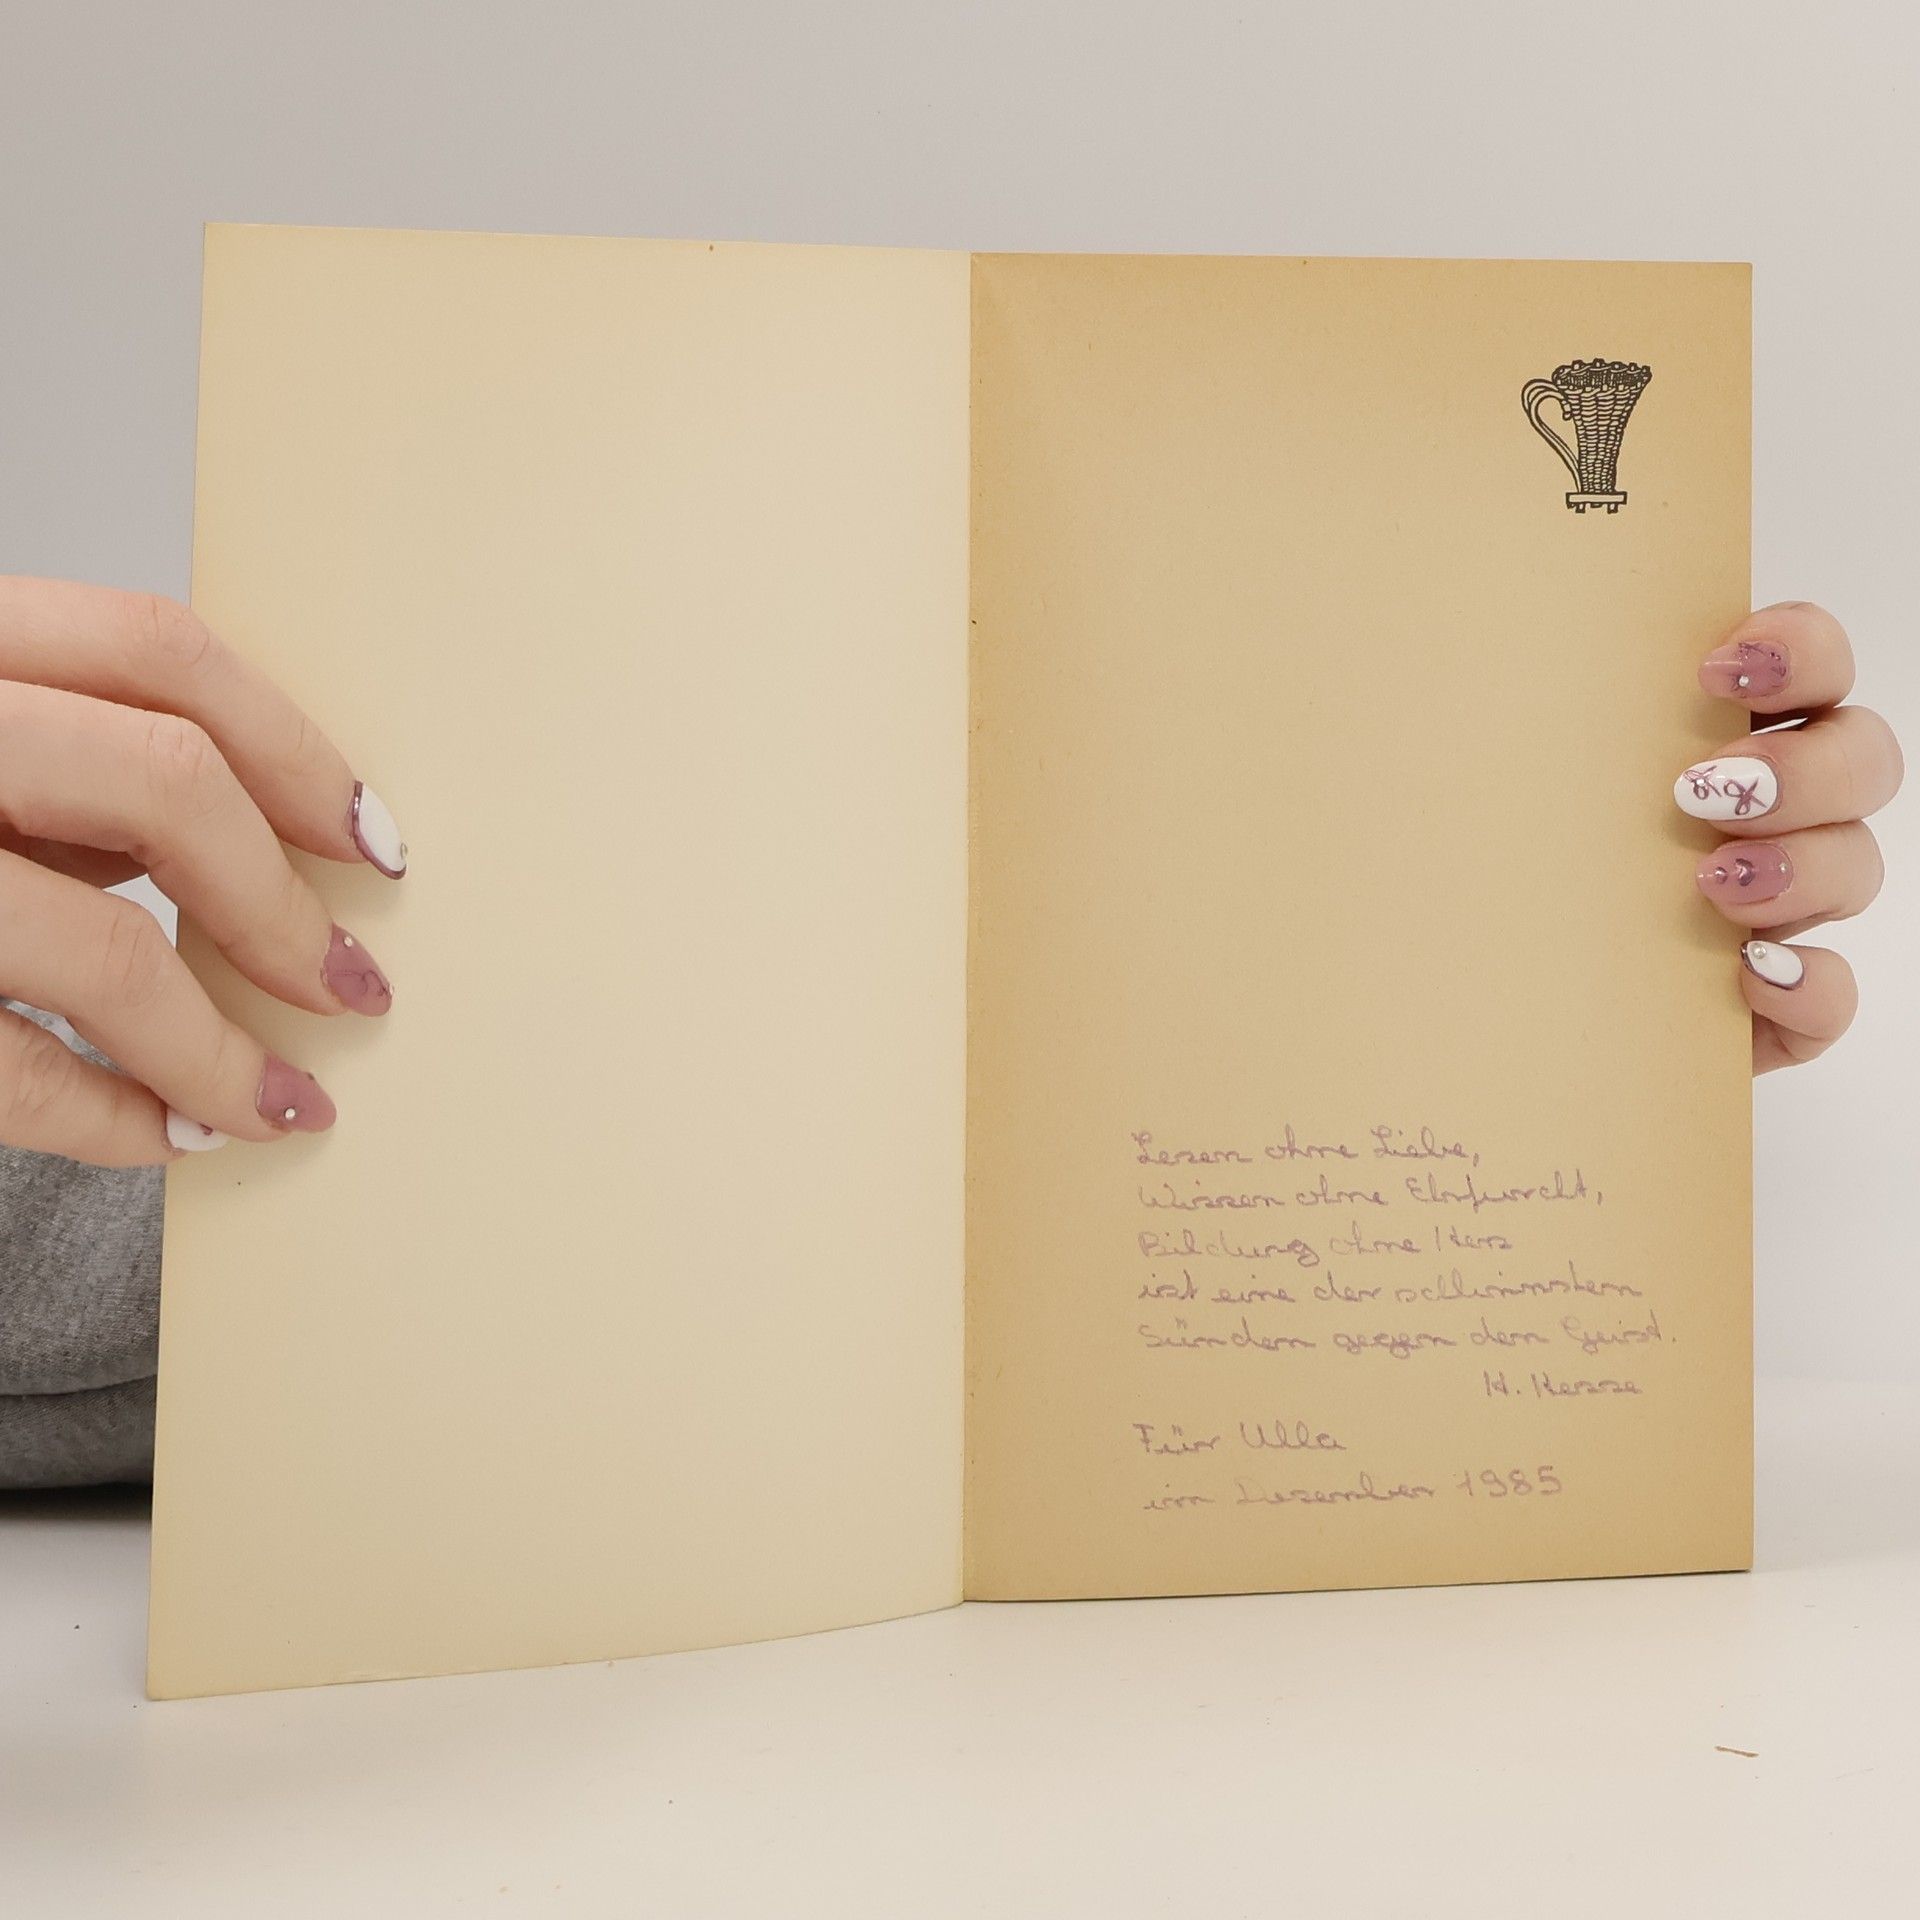 Lesen ohne Liebe,
Wissen ohne Ehrfurcht,
Bildung ohne Herz
ist eine der schlimmsten
Sünden gegen den Geist.
H. Hesse
Für Ulla
im Dezember 1985